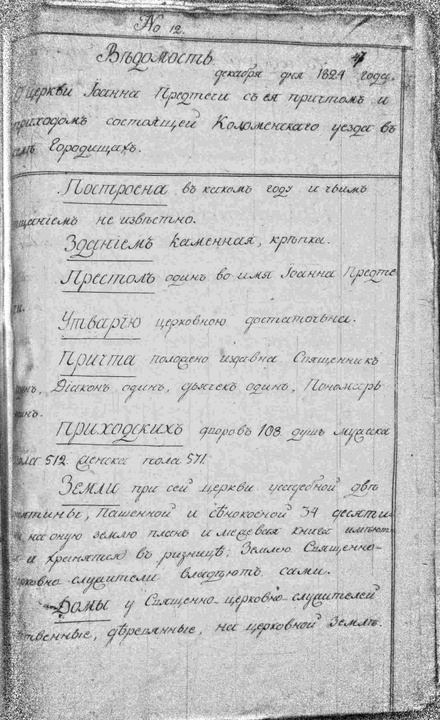 No 12.
Вѣдомость
декабря дня 1824 году.
О церкви Іоанна Предтечи съ ея причтомъ и
приходомъ состоящей Коломенскаго уезда въ
селѣ Городищахъ.
Построена въ какомъ году и чьимъ
тщаніемъ не извѣстно.
Зданіемъ каменная, крѣпка.
Престолъ одинъ во имя Іоанна Предте
чи.
Утварію церковною достаточна.
Причта положено издавна Священникъ
одинъ, Діаконъ одинъ, дьячекъ одинъ, Пономарь
одинъ.
Приходскихъ дворовъ 108. душъ мужеска
пола 512. женска пола 571.
Земли при сей церкви усадебной двѣ
десятины, пашенной и сѣнокосной 34 десяти
ны, на оную землю планъ и межевая книга имѣют
ся и хранятся въ ризницѣ; Землею Священно-
церковно-служители владѣютъ сами.
Домы у Священно-церковно-служителей
собственные, деревянные, на церковной землѣ.